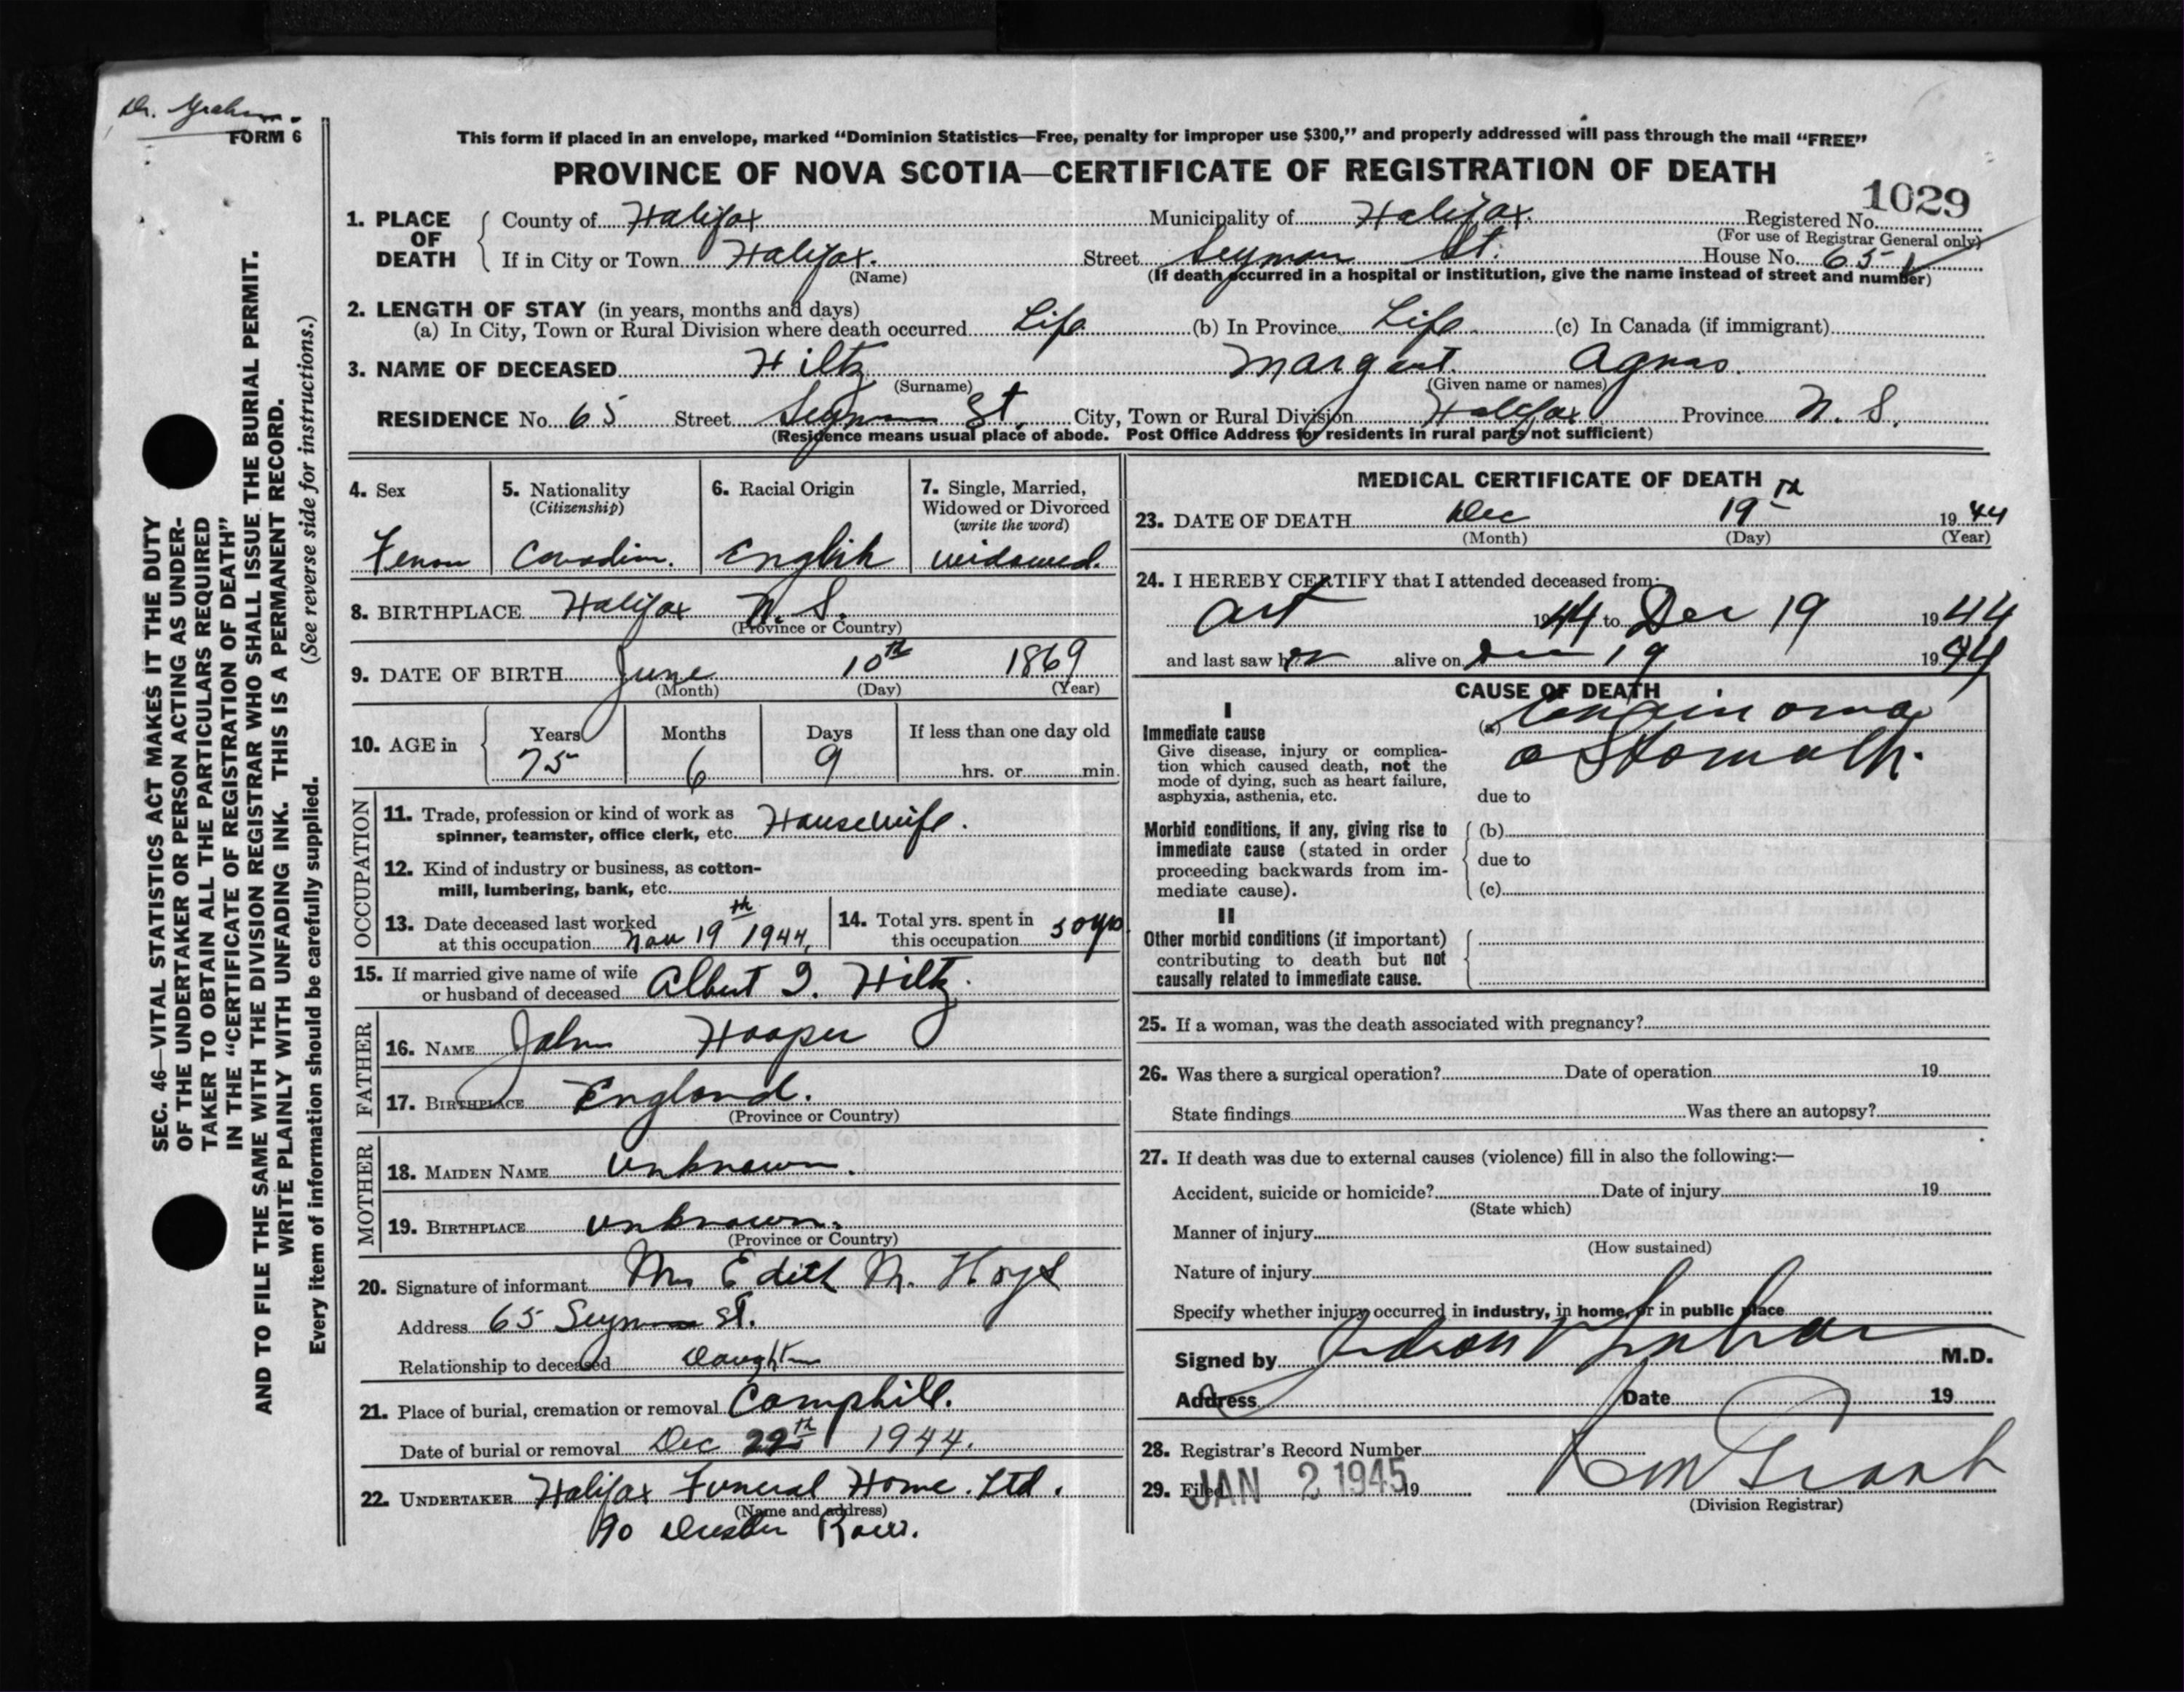 Dr. Graham.
FORM 6
This form if placed in an envelope, marked “Dominion Statistics—Free, penalty for improper use $300,” and properly addressed will pass through the mail “FREE”
PROVINCE OF NOVA SCOTIA—CERTIFICATE OF REGISTRATION OF DEATH
1029
1. PLACE OF DEATH County of Halifax Municipality of Halifax. Registered No.
(For use of Registrar General only)
If in City or Town Halifax. Street St. House No. 65
(Name) (If death occurred in a hospital or institution, give the name instead of street and number)
2. LENGTH OF STAY (in years, months and days)
(a) In City, Town or Rural Division where death occurred Life (b) In Province Life (c) In Canada (if immigrant)
3. NAME OF DECEASED Hiltz Margaret. Agnes.
(Surname) (Given name or names)
RESIDENCE No. 65 Street St. City, Town or Rural Division Halifax Province N. S.
(Residence means usual place of abode. Post Office Address for residents in rural parts not sufficient)
4. Sex 5. Nationality 6. Racial Origin 7. Single, Married,
(Citizenship) Widowed or Divorced
(write the word)
Canadian. English widowed.
8. BIRTHPLACE Halifax N. S.
(Province or Country)
9. DATE OF BIRTH June 10th 1869
(Month) (Day) (Year)
10. AGE in Years Months Days If less than one day old
75 6 9 hrs. or min.
OCCUPATION
11. Trade, profession or kind of work as
spinner, teamster, office clerk, etc. Housewife.
12. Kind of industry or business, as cotton-
mill, lumbering, bank, etc.
13. Date deceased last worked
at this occupation Nov 19th 1944,
14. Total yrs. spent in
this occupation 50 yrs
15. If married give name of wife
or husband of deceased Albert Hiltz.
FATHER
16. NAME John Hooper
17. BIRTHPLACE England.
(Province or Country)
MOTHER
18. MAIDEN NAME unknown.
19. BIRTHPLACE unknown.
(Province or Country)
20. Signature of informant Mrs Edith M.
Address 65 St.
Relationship to deceased Daughter
21. Place of burial, cremation or removal Camphill.
Date of burial or removal Dec 22th 1944.
22. UNDERTAKER Halifax Funeral Home. Ltd.
(Name and address)
90 Row.
MEDICAL CERTIFICATE OF DEATH
23. DATE OF DEATH Dec 19th 1944
(Month) (Day) (Year)
24. I HEREBY CERTIFY that I attended deceased from:
1944 to Dec 19 1944
and last saw her alive on Dec 19 1944
CAUSE OF DEATH
I
Immediate cause
Give disease, injury or complica-
tion which caused death, not the
mode of dying, such as heart failure,
asphyxia, asthenia, etc.
(a) Carcinoma
o Stomach.
due to
Morbid conditions, if any, giving rise to
immediate cause (stated in order
proceeding backwards from im-
mediate cause).
(b)
due to
(c)
II
Other morbid conditions (if important)
contributing to death but not
causally related to immediate cause.
25. If a woman, was the death associated with pregnancy?
26. Was there a surgical operation? Date of operation 19
State findings Was there an autopsy?
27. If death was due to external causes (violence) fill in also the following:—
Accident, suicide or homicide? Date of injury 19
(State which)
Manner of injury
(How sustained)
Nature of injury
Specify whether injury occurred in industry, in home, or in public place
Signed by Judson Graham M.D.
Address Date 19
28. Registrar's Record Number
29. Filed JAN 2 1945 19
(Division Registrar)
SEC. 46—VITAL STATISTICS ACT MAKES IT THE DUTY
OF THE UNDERTAKER OR PERSON ACTING AS UNDER-
TAKER TO OBTAIN ALL THE PARTICULARS REQUIRED
IN THE “CERTIFICATE OF REGISTRATION OF DEATH”
AND TO FILE THE SAME WITH THE DIVISION REGISTRAR WHO SHALL ISSUE THE BURIAL PERMIT.
WRITE PLAINLY WITH UNFADING INK. THIS IS A PERMANENT RECORD.
Every item of information should be carefully supplied. (See reverse side for instructions.)